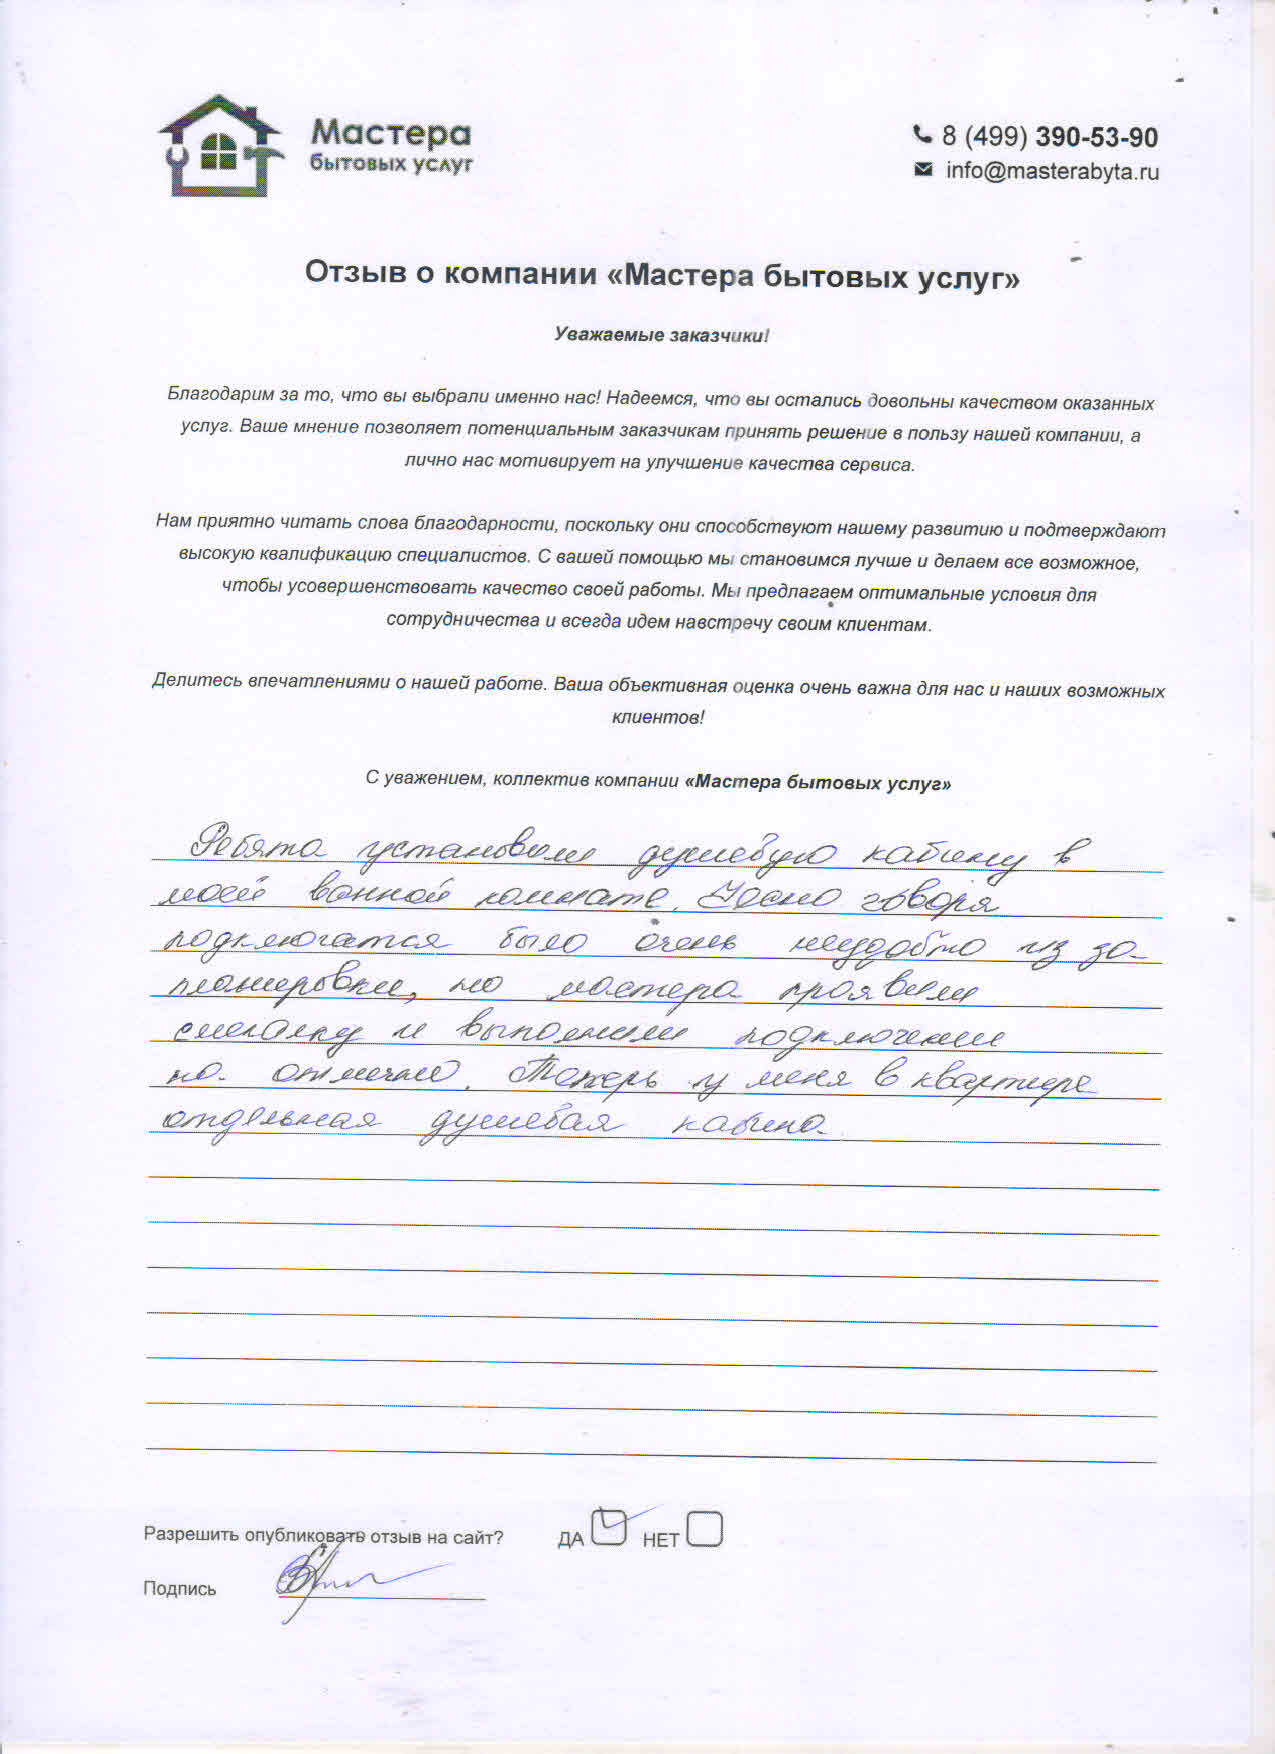 Мастера
бытовых услуг
8 (499) 390-53-90
info@masterabyta.ru
Отзыв о компании «Мастера бытовых услуг»
Уважаемые заказчики!
Благодарим за то, что вы выбрали именно нас! Надеемся, что вы остались довольны качеством оказанных
услуг. Ваше мнение позволяет потенциальным заказчикам принять решение в пользу нашей компании, а
лично нас мотивирует на улучшение качества сервиса.
Нам приятно читать слова благодарности, поскольку они способствуют нашему развитию и подтверждают
высокую квалификацию специалистов. С вашей помощью мы становимся лучше и делаем все возможное,
чтобы усовершенствовать качество своей работы. Мы предлагаем оптимальные условия для
сотрудничества и всегда идем навстречу своим клиентам.
Делитесь впечатлениями о нашей работе. Ваша объективная оценка очень важна для нас и наших возможных
клиентов!
С уважением, коллектив компании «Мастера бытовых услуг»
Ребята установили душевую кабину в
моей ванной комнате. Чесно говоря
подключатся было очень неудобно из за
планировки, но мастера проявили
смекалку и выполнили подключение
на отлично. Теперь у меня в квартире
отдельная душевая кабина.
Разрешить опубликовать отзыв на сайт? ДА НЕТ
Подпись